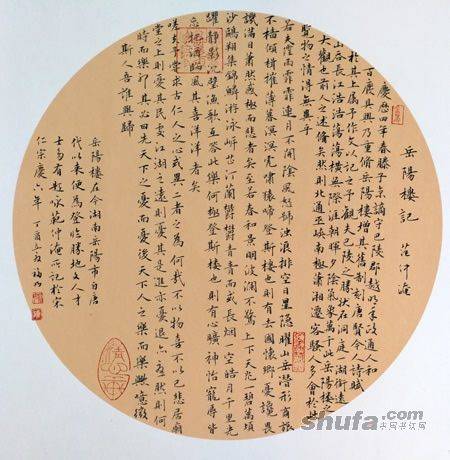 岳陽樓記 范仲淹
慶曆四年春滕子京謫守巴陵郡越明年政通人和
百廢具興乃重修岳陽樓增其舊制刻唐賢今人詩賦
於其上屬予作文以記之予觀夫巴陵之勝狀在洞庭一湖銜遠
山吞長江浩浩蕩蕩橫無際涯朝暉夕陰氣象萬千此岳陽樓之
大觀也前人之述備矣然則北通巫峽南極瀟湘遷客騷人多會於此
覽物之情得無異乎
若夫霪雨霏霏連月不開陰風怒號濁浪排空日星隱曜山岳潛形商旅
不檣傾楫摧薄暮冥冥虎嘯猿啼登斯樓也則有去國懷鄉憂讒畏
譏滿目蕭然感極而悲者矣至若春和景明波瀾不驚上下天光一碧萬頃
沙鷗翔集錦鱗游泳岸芷汀蘭鬱鬱青青而或長煙一空皓月千里光
耀靜影沉璧漁歌互答此樂何極登斯樓也則有心曠神怡寵辱皆
忘把酒臨風其喜洋洋者矣
嗟夫予嘗求古仁人之心或異二者之為何哉不以物喜不以己悲居廟
堂之上則憂其民處江湖之遠則憂其君是進亦憂退亦憂然則何
時而樂耶其必曰先天下之憂而憂後天下人之樂而樂歟噫微
斯人吾誰與歸
岳陽樓在今湖南岳陽市自唐
代以來便為登臨勝地文人才
士多有題咏范仲淹所記於宋
仁宗慶六年 丁酉
shufa.com
书法书红网